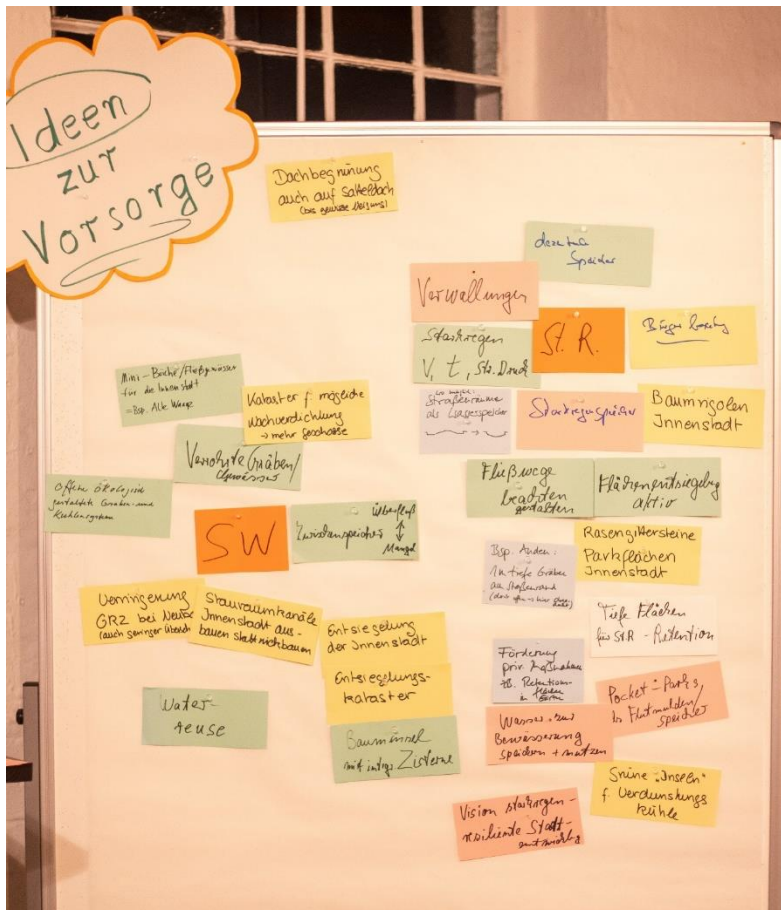 Ideen
zur
Vorsorge
Dachbegrünung
auch auf Satteldach
(bis gewisse Neigung)
dezentrale
Speicher
Verwallungen
Starkregen
V, t, Str. Druck
St. R.
Mini-Bäche/Fließgewässer
für die Innenstadt
=Bsp. Alte Waage
Kataster f. mögliche
Nachverdichtung
→ mehr Geschosse
Straßenräume
als Wasserspeicher
Starkregenspeicher
Baumrigolen
Innenstadt
Verrohrte Gräben/
Gewässer
Offene ökologisch
gestaltete Graben- und
SW
Zwischenspeicher
Überfluß
Mangel
Fließwege
beachten
gestalten
Flächenentsiegelung
aktiv
Bsp. Anden:
1m tiefe Gräben
am Straßenrand
Rasengittersteine
Parkflächen
Innenstadt
Verringerung
GRZ bei Neu
(auch geringer Übersch
Stauraumkanäle
Innenstadt aus-
bauen statt nicht bauen
Entsiegelung
der Innenstadt
Entsiegelungs-
kataster
Tiefe Flächen
für StR - Retention
Förderung
priv. Maßnahmen
zB. Retention
in
Pocket-Parks,
in Flutmulden/
speicher
Water-
reuse
Bauminsel
mit integr. Zisterne
Wasser zur
Bewässerung
speichern + nutzen
Grüne "Inseln"
f. Verdunstungs
kühle
Vision starkregen-
resiliente Stadt-
entwicklg